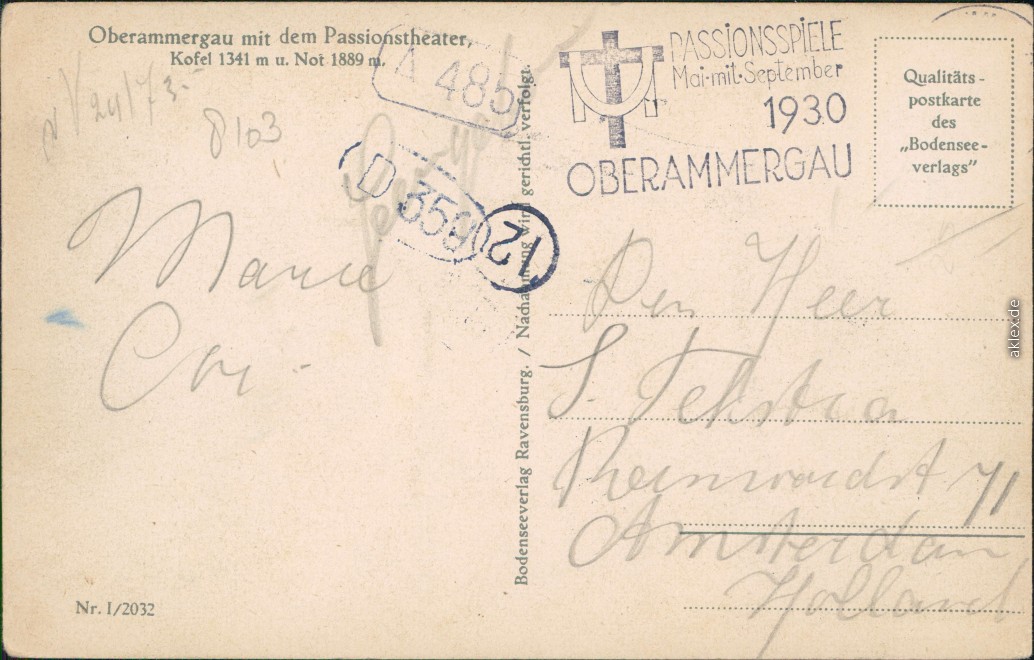 Oberammergau mit dem Passionstheater,
Kofel 1341 m u. Not 1889 m.
8103
A 485
D 359
12
PASSIONSSPIELE
Mai-mit-September
1930
OBERAMMERGAU
Qualitäts-
postkarte
des
„Bodensee-
verlags"
Marie
Cor.
Bodenseeverlag Ravensburg. / Nachahmung wird gerichtl. verfolgt.
Den Heer
S. Tekstra
Reinwardst 71
Amsterdam
Holland
Nr. I/2032
aklex.de